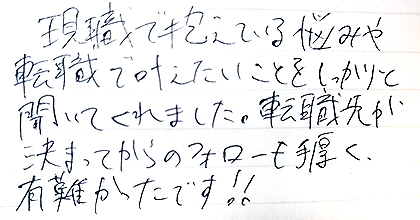 現職で抱えている悩みや
転職で叶えたいことをしっかりと
聞いてくれました。転職先が
決まってからのフォローも手厚く、
有難かったです!!